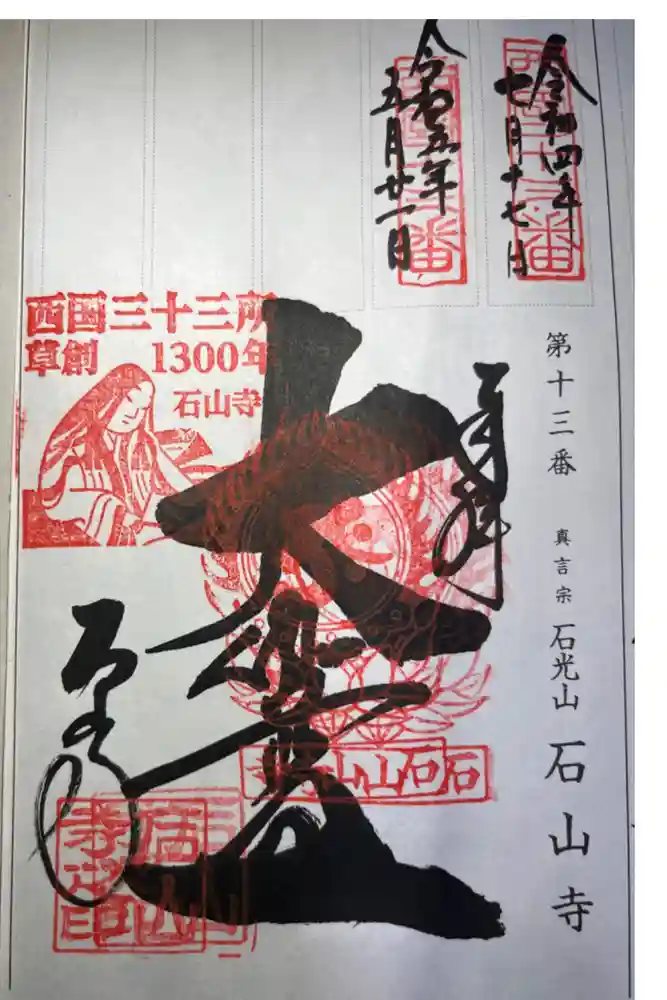 令和四年
七月十七日
令和五年
五月廿一日
第十三番 真言宗 石光山 石山寺
奉拝
大悲殿
石山寺
西国三十三所
草創 1300年
石山寺
石山寺
石山寺印